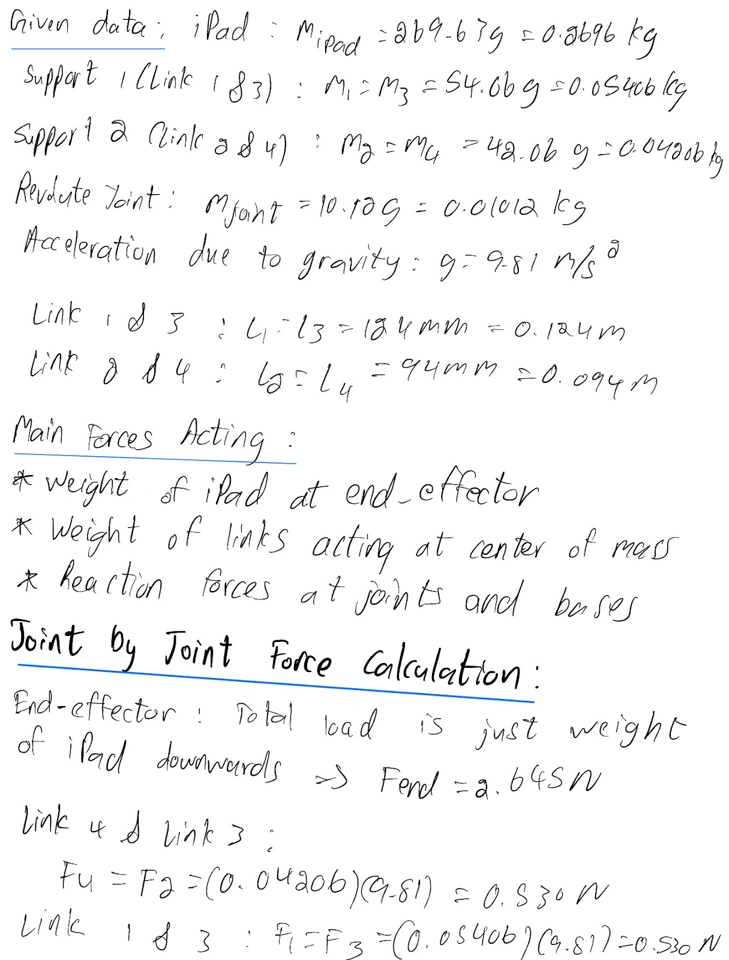 Given data: iPad : Mipad = 269.63g = 0.2696 kg
Support 1 (Link 1 & 3) : M1 = M3 = 54.06 g = 0.05406 kg
Support 2 (link 2 & 4) : M2 = M4 = 42.06 g = 0.04206 kg
Revolute Joint : Mjoint = 10.12g = 0.01012 kg
Acceleration due to gravity : g = 9.81 m/s²
Link 1 & 3 : L1 = L3 = 124mm = 0.124m
Link 2 & 4 : L2 = L4 = 94mm = 0.094m
Main Forces Acting :
* Weight of iPad at end-effector
* Weight of links acting at center of mass
* Reaction forces at joints and bases
Joint by Joint Force Calculation :
End-effector : Total load is just weight
of iPad downwards => Fend = 2.645N
Link 4 & Link 3 :
F4 = F2 = (0.04206)(9.81) = 0.530 N
Link 1 & 3 : F1 = F3 = (0.05406)(9.81) = 0.530 N